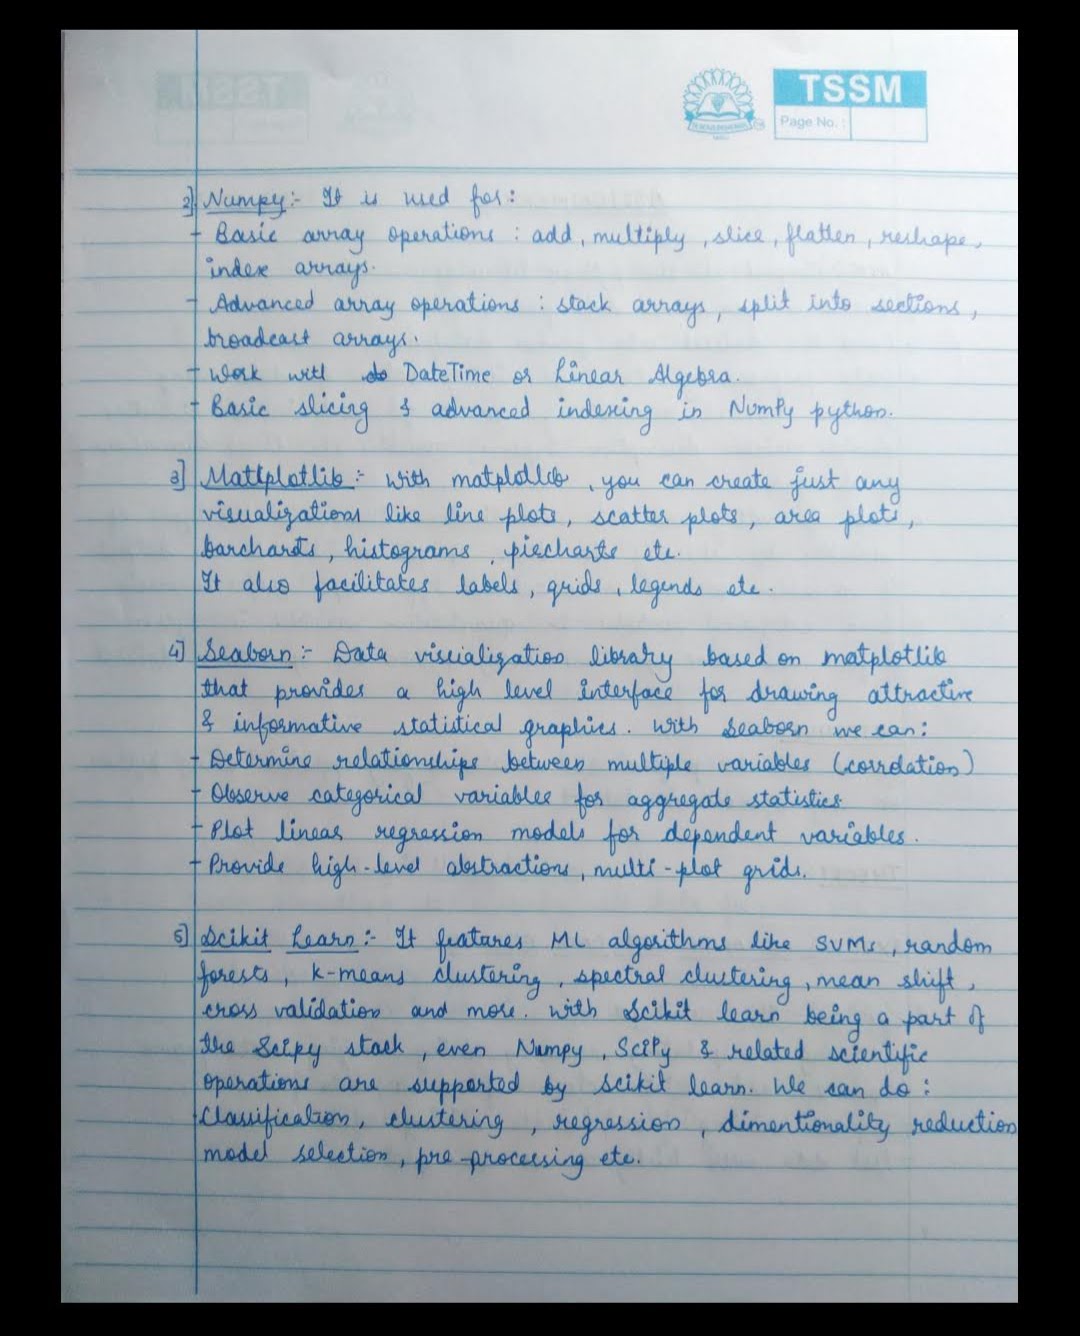 TSSM
Page No. :
2] Numpy :- It is used for :
- Basic array operations : add, multiply, slice, flatten, reshape,
index arrays.
- Advanced array operations : stack arrays, split into sections,
broadcast arrays.
- Work with DateTime or Linear Algebra.
- Basic slicing & advanced indexing in NumPy python.
3] Mattplotlib :- With matplotlib, you can create just any
visualizations like line plots, scatter plots, area plots,
barcharts, histograms, piecharts etc.
It also facilitates labels, grids, legends etc.
4] Seaborn :- Data visualization library based on matplotlib
that provides a high level interface for drawing attractive
& informative statistical graphics. With Seaborn we can :
- Determine relationships between multiple variables (correlation)
- Observe categorical variables for aggregate statistics
- Plot linear regression models for dependent variables.
- Provide high-level abstractions, multi-plot grids.
5] Scikit Learn :- It features ML algorithms like SVMs, random
forests, k-means clustering, spectral clustering, mean shift,
cross validation and more. With Scikit learn being a part of
the Scipy stack, even Numpy, SciPy & related scientific
operations are supported by Scikit learn. We can do :
Classification, clustering, regression, dimentionality reduction
model selection, pre-processing etc.